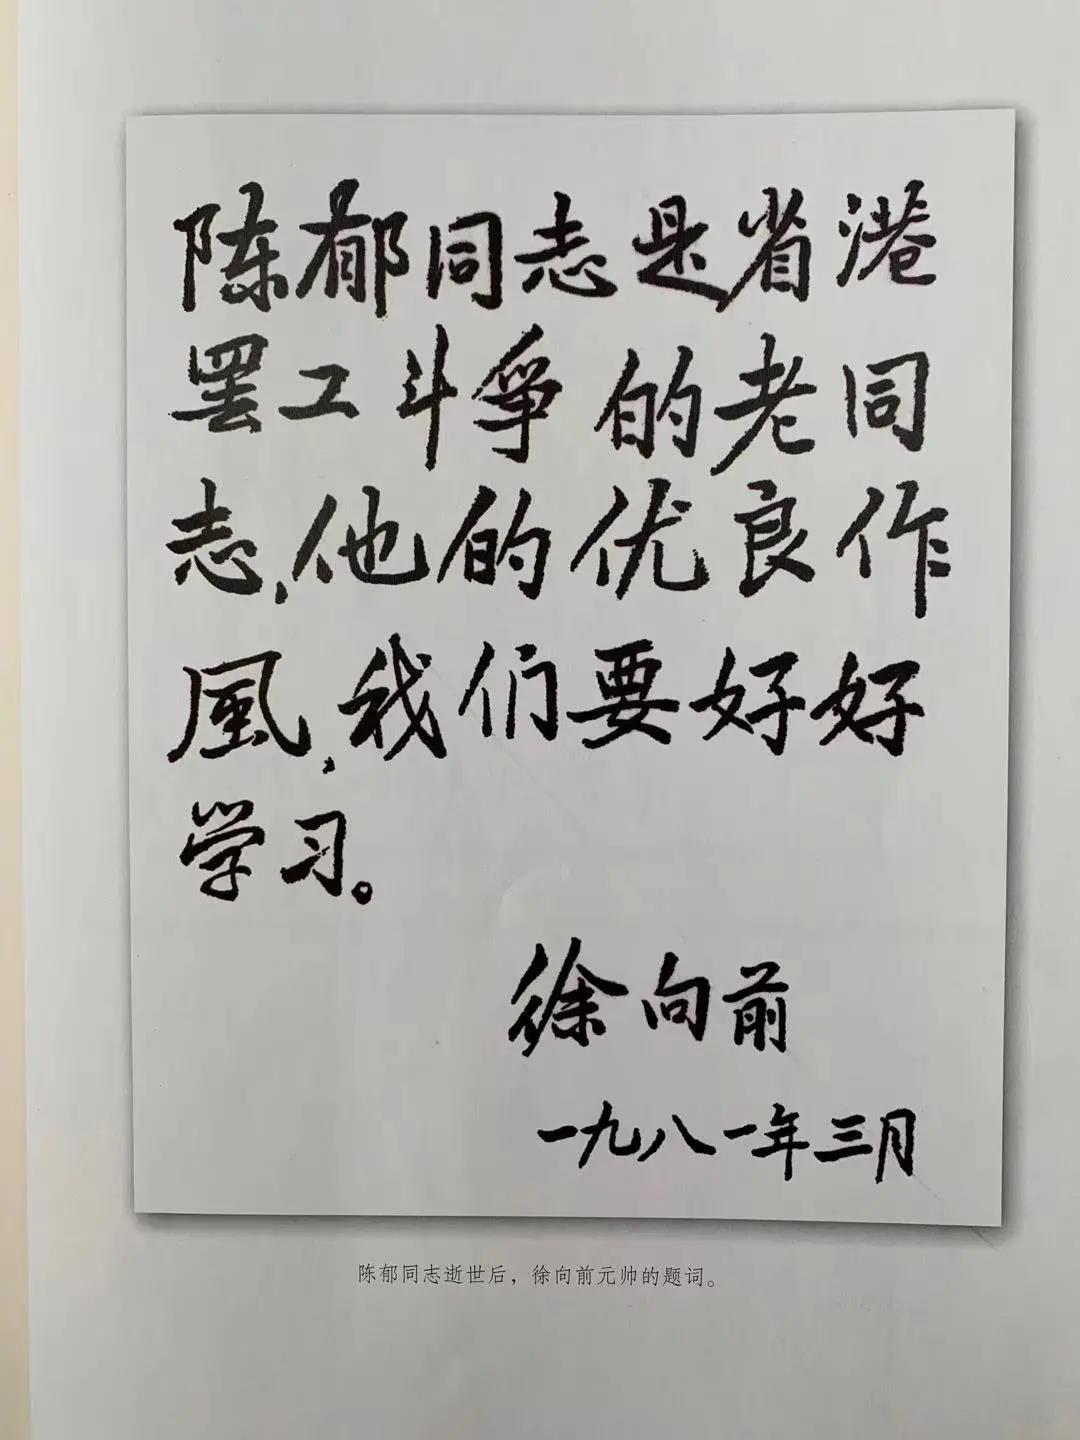 陈郁同志是省港
罢工斗争的老同
志,他的优良作
風,我们要好好
学习。
徐向前
一九八一年三月
陈郁同志逝世后，徐向前元帅的题词。